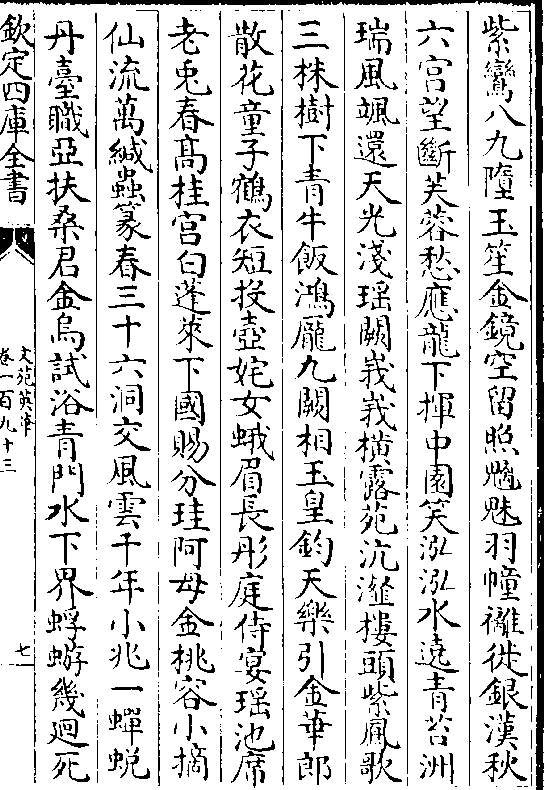 紫鸞八九墮玉笙金鏡空留照魑魅羽幢褵徙銀漢秋
六宫望斷芙蓉愁應龍下揮中園笑泓泓水遶青苔洲
瑞風颯還天光淺瑶闕峩峩横露苑沆瀣樓頭紫鳳歌
三株樹下青牛飯鴻龎九闕相玉皇鈞天樂引金華郎
散花童子鶴衣短投壺姹女蛾眉長彤庭侍宴瑶池席
老兎春髙桂宫白蓬萊下國賜分珪阿母金桃容小摘
仙流萬緘蟲篆春三十六洞交風雲千年小兆一蟬蜕
丹臺職亞扶桑君金烏試浴青門水下界蜉蝣幾廻死
欽定四庫全書
文苑英華
卷一百九十三
七